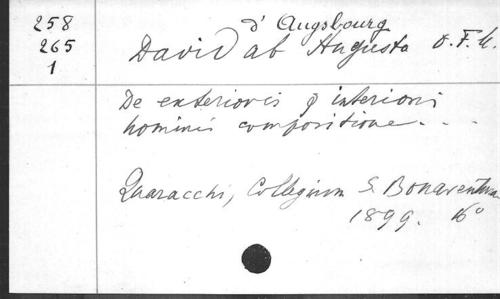 258
265
1
d'Augsbourg
David ab Augusta O.F.M.
De exterioris & interioris
hominis compositione...
Quaracchi, Collegium S. Bonaventura
1899. 16°